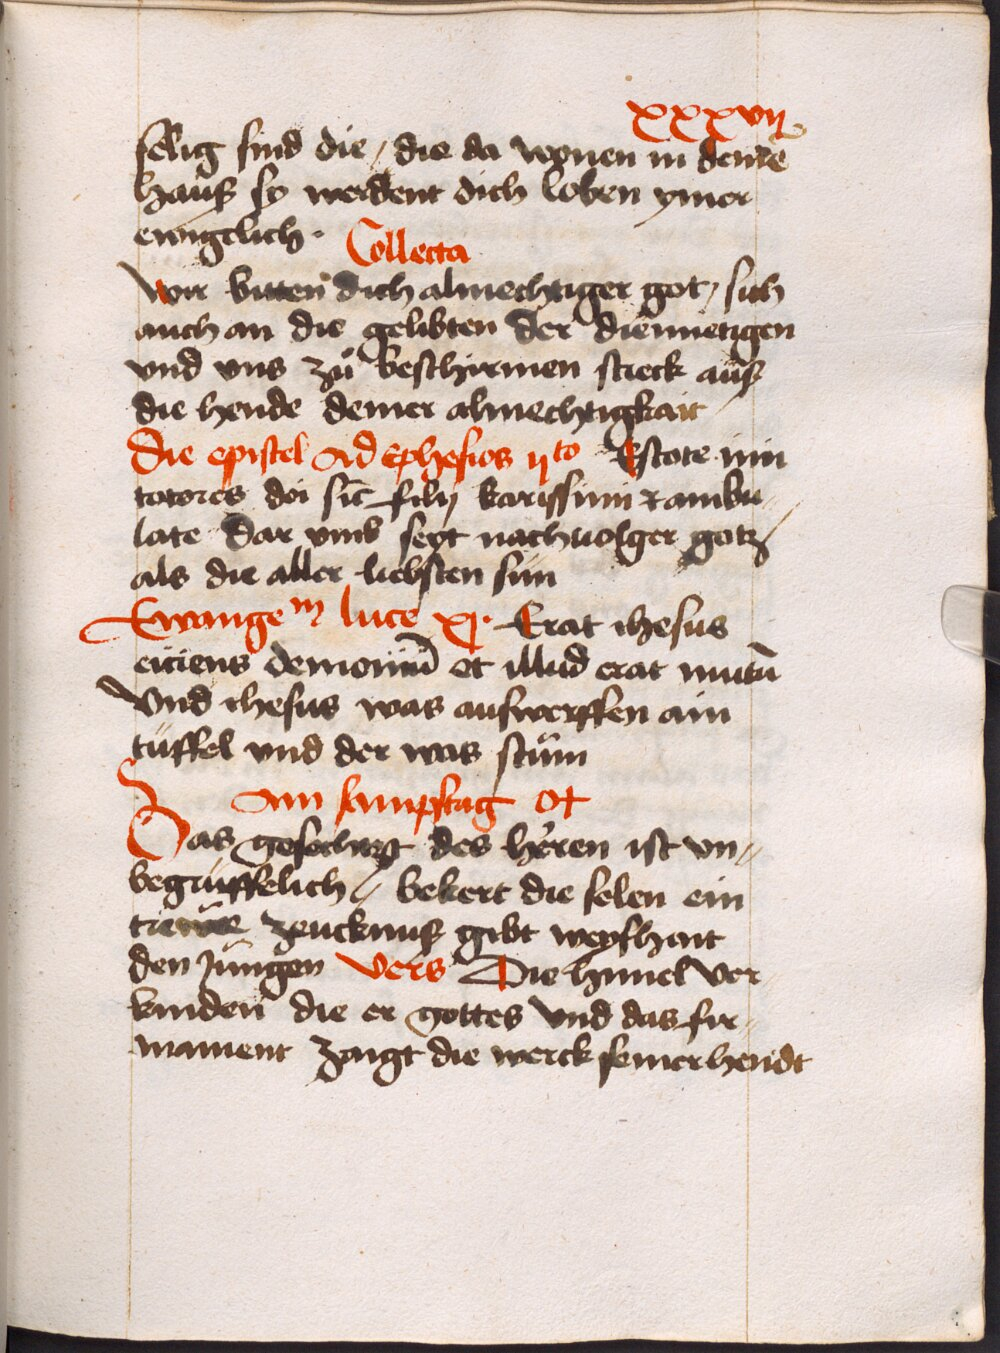 xxxvij
sëlig sind die / die da wonen in deine
hauß sy werdent dich loben ymer
ewigclich · Collecta
Wir bitten dich almechtiger got / sich
auch an die gelibten der diemietigen
vnd vns zů beschirmen streck auß
die hende deiner almechtigkait
Die epistel ad ephesios ijto Estote imi
tatores dei sic filij karissimi & ambu
late dar vmb seyt nachuolger gotz
als die aller liebsten sün
Ewangem luce xj · Erat ihesus
eiciens demoniū et illud erat mutū
Vnd ihesus was aufwerffen ain
tüffel vnd der was stum
Am sampstag ot
Das gesechtzt des heren ist vn
begruffelich / bekert die selen ein
trewe zeucknuß gibt weyshait
den jungen Vers Die himel ver
kinden die er gottes vnd das fir
mament zaigt die werck seiner hendt